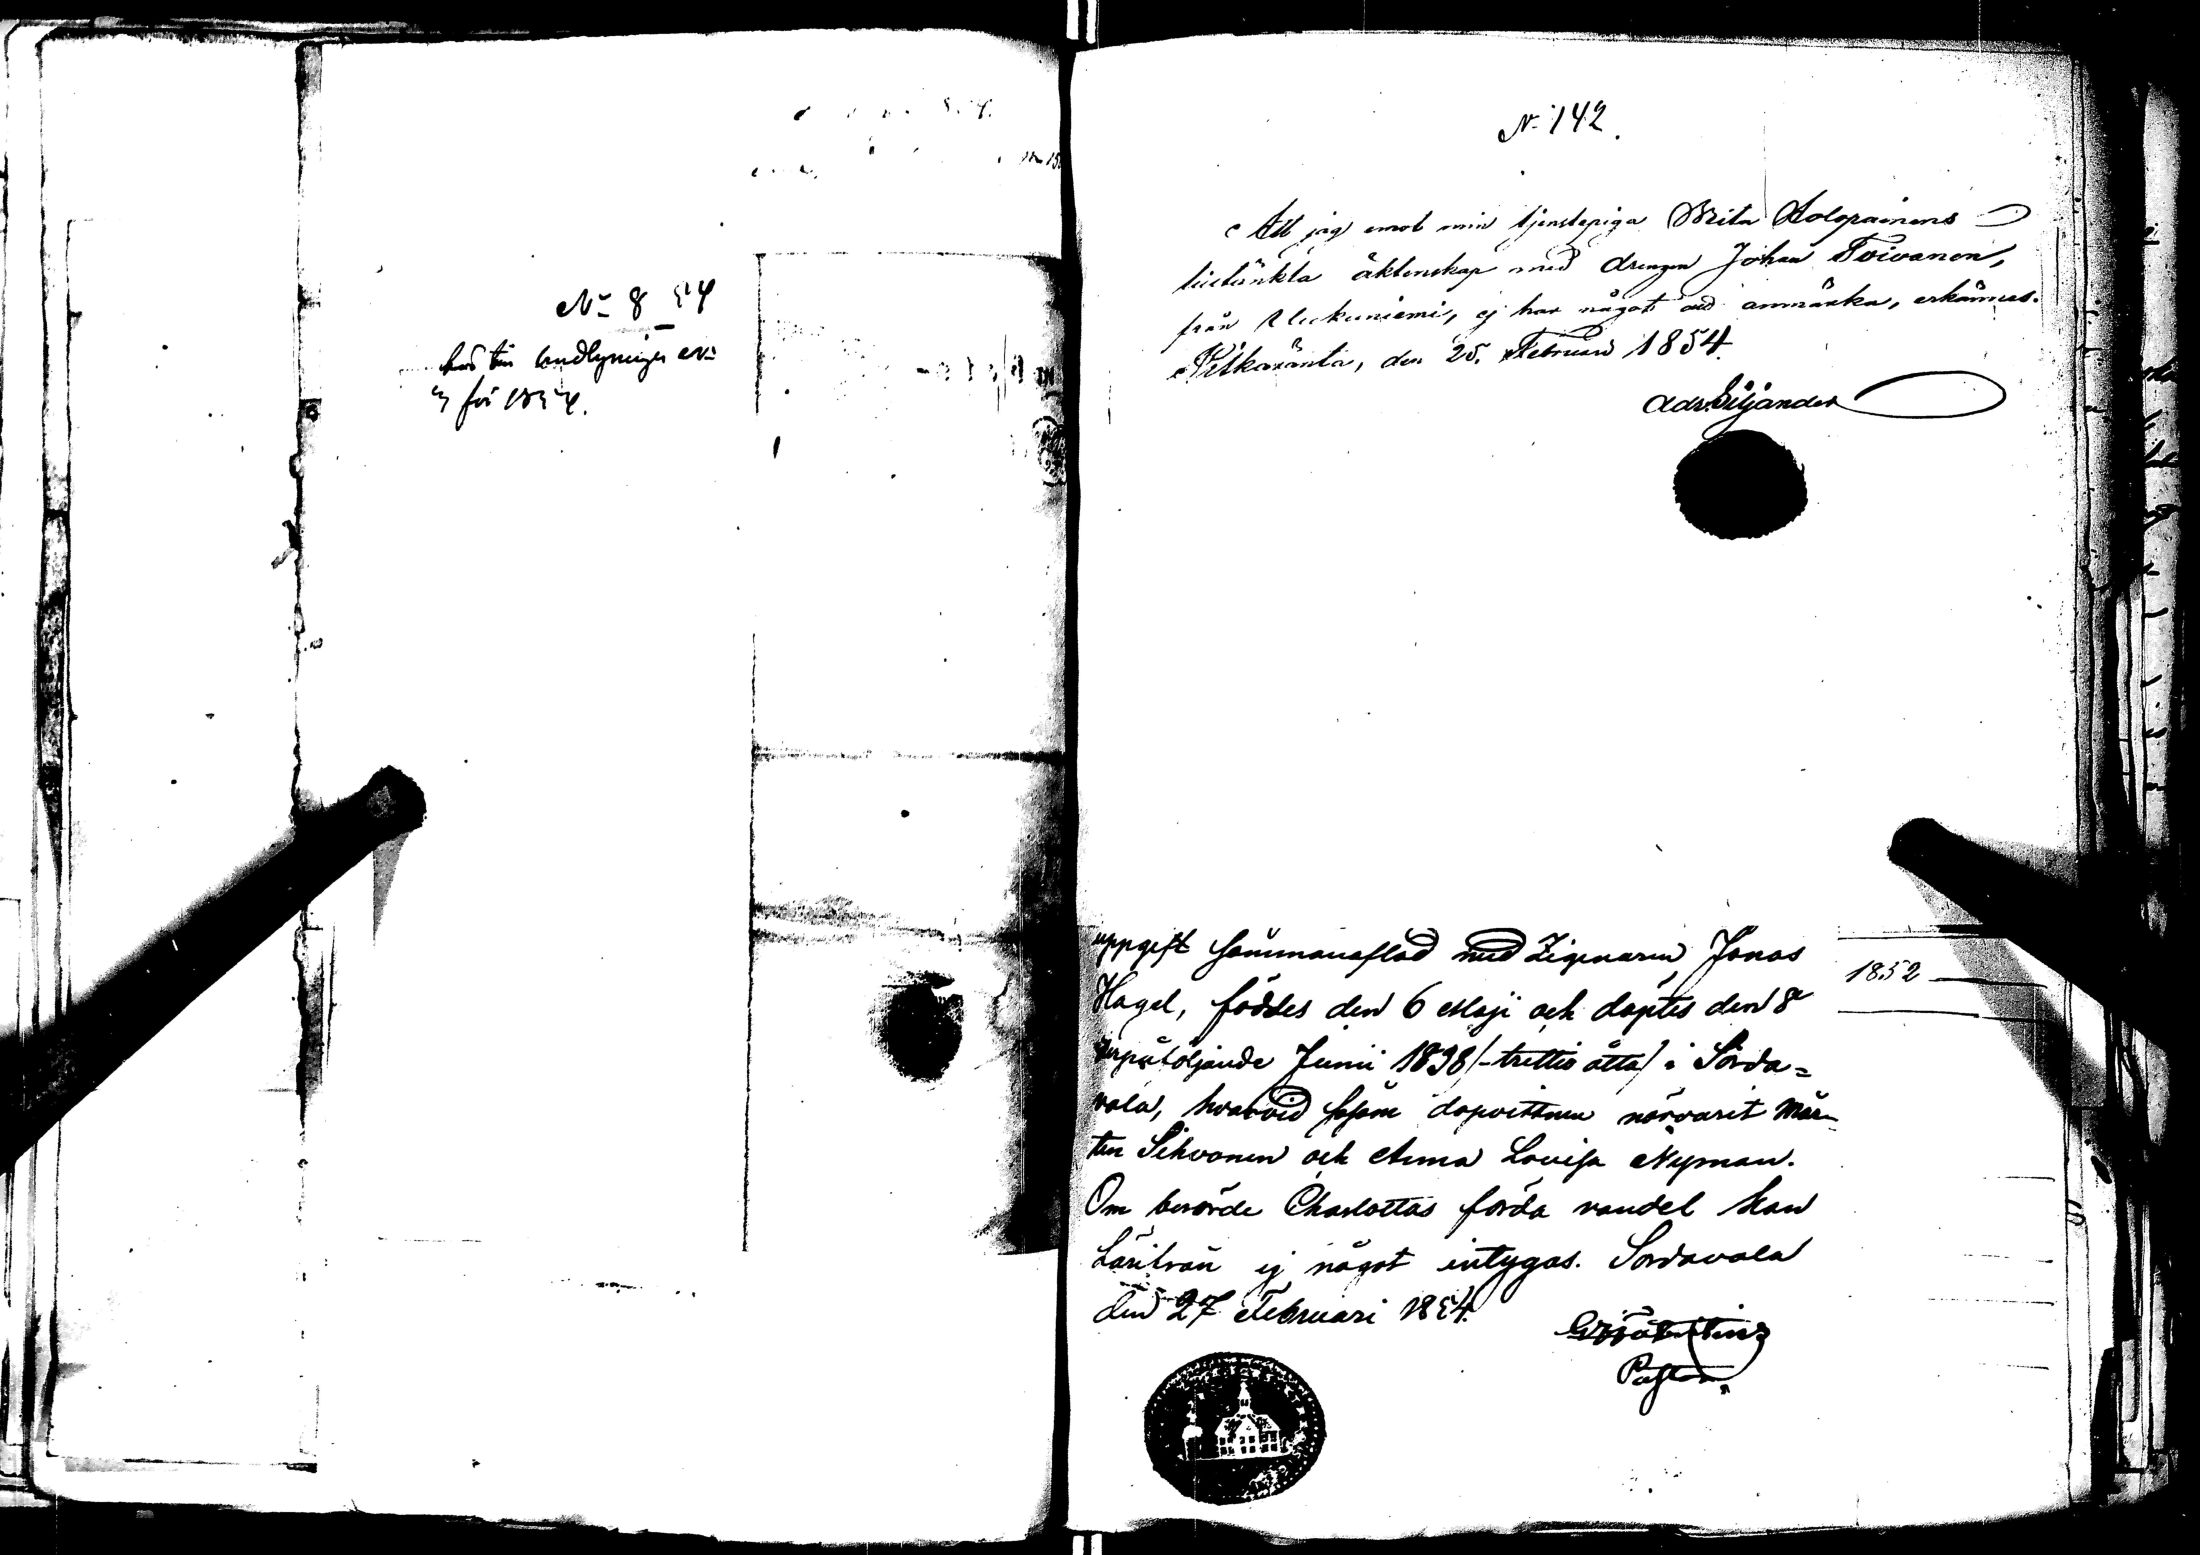 No 8 54
hör till handlingen No
3 för 1854.
No 142.
Att jag emot min tjenstepiga Brita Holopainens
tilltänkta äktenskap med drengen Johan Toivanen,
från Uukuniemi, ej har något att anmärka, erkännes.
Pitkäranta, den 25. Februari 1854.
Adr. Siljander
uppgift sammanaflad med Zigenaren Jonas
Hagel, föddes den 6 Maji och döptes den 8
derpåföljande Junii 1838 (-trettio åtta) i Sorda=
vala, hvarvid såsom dopvittnen närvarit Mår-
ten Sihvonen och Anna Lovisa Nyman.
Om berörde Charlottas förda vandel kan
härifrån ej något intygas. Sordavala
den 27 Februari 1854.
Pastor.
1852